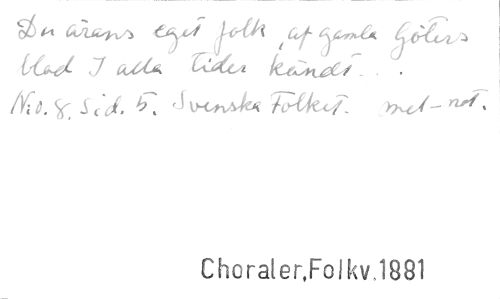 Du ärans eget folk, af gamla Göters
blod I alla tider kändt...
N:o. 8. Sid. 5. Svenska Folket. mel-not.
Choraler,Folkv.1881